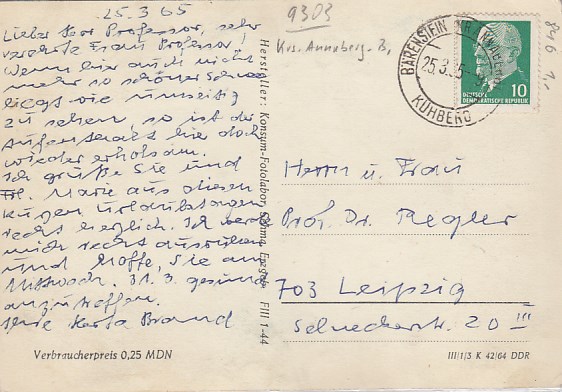 25.3.65
Lieber Herr Professor, sehr
verehrte Frau Professor!
Wenn hier auch nicht
mehr so schöner Schnee
liegt wie umseitig
zu sehen, so ist der
Aufenthalt hier doch
wieder erholsam.
Ich grüße Sie und
Frl. Marie aus diesen
kurzen Urlaubstagen
recht herzlich. Ich werde
mich recht ausruhen
und hoffe, Sie am
Mittwoch, 31.3. gesund
anzutreffen.
Ihre Herta Brand
Verbraucherpreis 0,25 MDN
Hersteller: Konsum-Fotolabor, Ehrenfr. FIII 1-44
9303
Krs. Annaberg. 3,
BÄRENSTEIN
25.3.65
KÜHBERG
10
DEUTSCHE
DEMOKRATISCHE REPUBLIK
846
1,-
Herrn u. Frau
Prof. Dr. Riegler
703 Leipzig
20 III
III/1/3 K 42/64 DDR